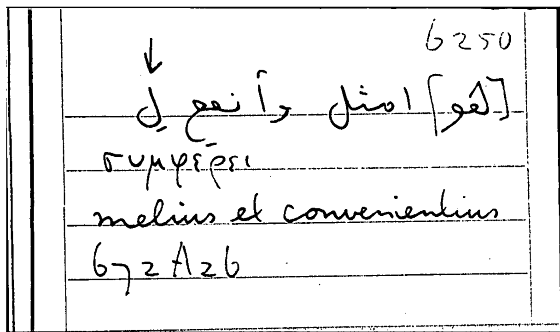 6250
↓
[لهو] امثل وأنفع ل
συμφέρει
melius et convenientius
672A26